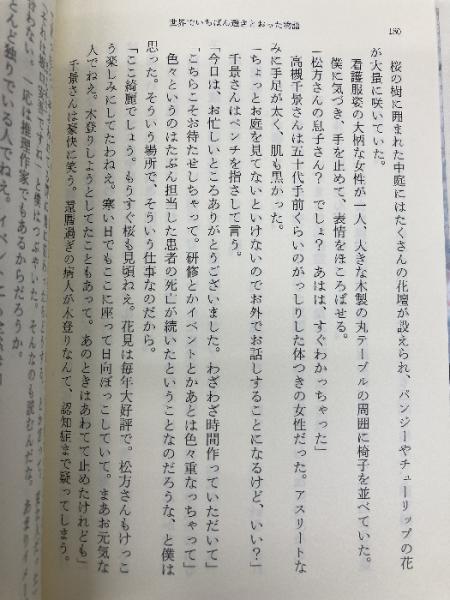 世界でいちばん透きとおった物語
180
桜の樹に囲まれた中庭にはたくさんの花壇が設えられ、パンジーやチューリップの花
が大量に咲いていた。
看護服姿の大柄な女性が一人、大きな木製の丸テーブルの周囲に椅子を並べていた。
僕に気づき、手を止めて、表情をほころばせる。
「松方さんの息子さん？　でしょ？　あはは、すぐわかっちゃった」
高槻千景さんは五十代手前くらいのがっしりした体つきの女性だった。アスリートな
みに手足が太く、肌も黒かった。
「ちょっとお庭を見てないといけないのでお外でお話しすることになるけど、いい？」
千景さんはベンチを指さして言う。
「今日は、お忙しいところありがとうございました。わざわざ時間作っていただいて」
「こちらこそお待たせしちゃって。研修とかイベントとかあとは色々重なっちゃって」
色々というのはたぶん担当した患者の死亡が続いたということなのだろうな、と僕は
思った。そういう場所で、そういう仕事なのだから。
「ここ綺麗でしょう。もうすぐ桜も見頃ねえ。花見は毎年大好評で。松方さんもけっこ
う楽しみにしてたわねえ。寒い日でもここに座って日向ぼっこしていて。まあお元気な
人でねえ。木登りしようとしてたこともあって。あのときはあわてて止めたけれども」
千景さんは豪快に笑う。還暦過ぎの病人が木登りなんて、認知症まで疑ってしまう。
とんど独りでいる人でねえ。イベント
一応は推理作家でもあるからだろうか。
と僕はつぶやいた。そんなのも読むんだな。あまりイメー